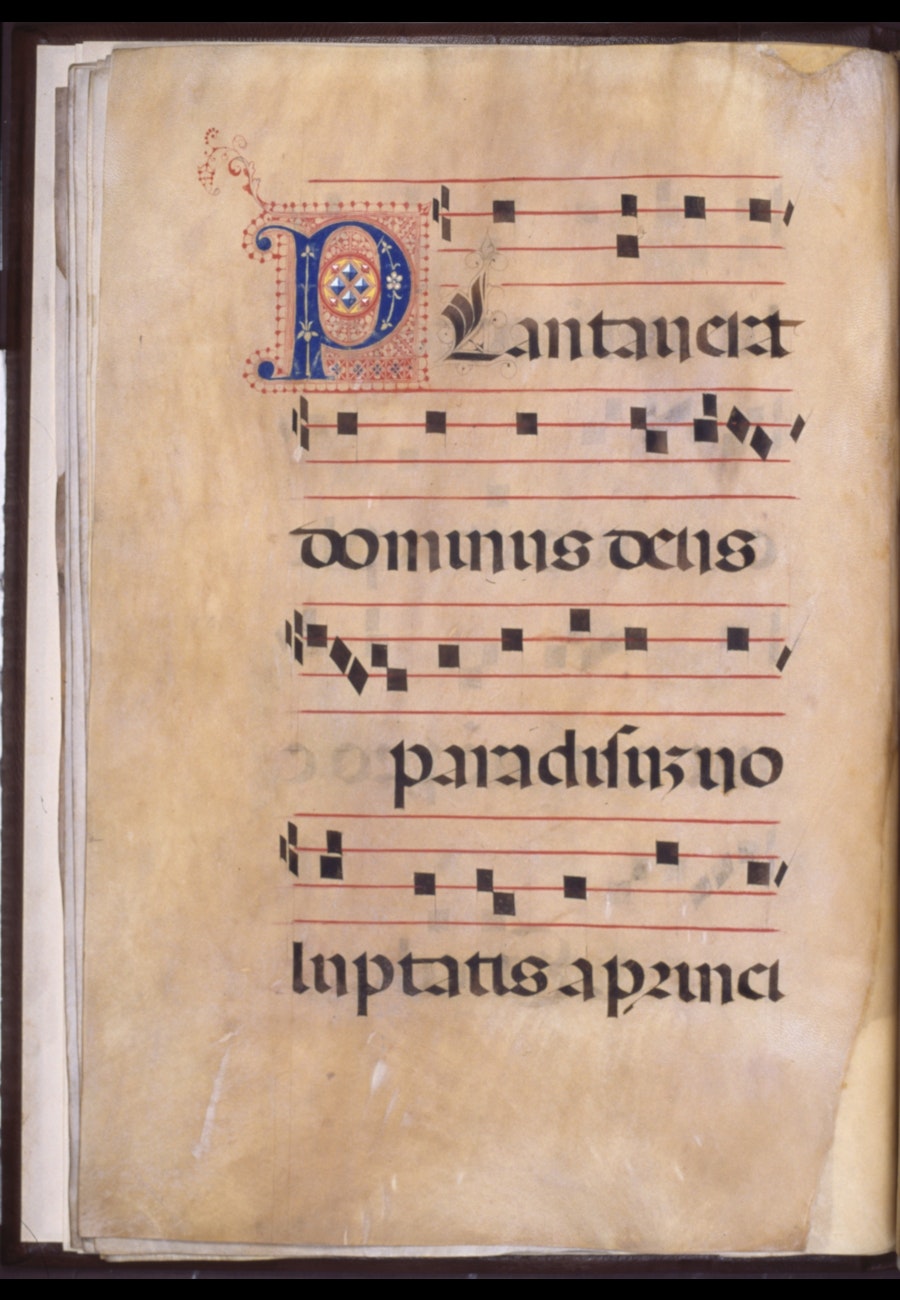 PLantaverat
dominus deus
paradisuz vo
luptatis a princi